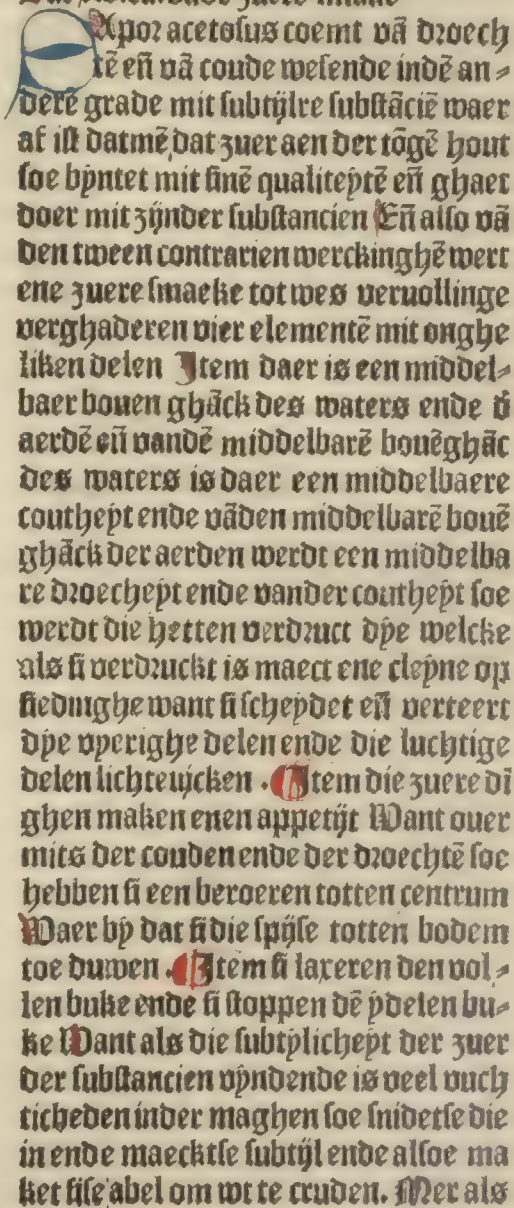 Apor acetosus coemt vã droech
tẽ eñ vã coude wesende indẽ an⸗
derẽ grade mit subtijlre substãciẽ waer
af ist datmẽ dat zuer aen der tõgẽ hout
soe bÿntet mit sinẽ qualiteÿtẽ eñ ghaet
doer mit zijnder substancien Eñ also vã
den tween contrarien werckinghẽ wert
ene zuere smaeke tot wes veruollinge
verghaderen vier elementẽ mit onghe
liken delen Item daer is een middel⸗
baer bouen ghãck des waters ende đ
aerdẽ eñ vandẽ middelbarẽ bouẽghãc
des waters is daer een middelbaere
coutheÿt ende vãden middelbarẽ bouẽ
ghãck der aerden werdt een middelba
re droecheÿt ende vander coutheÿt soe
werdt die hetten verdruct dÿe welcke
als si verdruckt is maect ene cleÿne op
siedinghe want si scheÿdet eñ verteert
dÿe vperighe delen ende die luchtige
delen lichte wijcken . Item die zuere dĩ
ghen maken enen appetijt Want ouer
mits der couden ende der droechtẽ soe
hebben si een beroeren totten centrum
Waer bÿ dat si die spijse totten bodem
toe duwen . Item si laxeren den vol⸗
len buke ende si stoppen dẽ ÿdelen bu⸗
ke Want als die subtÿlicheÿt der zuer
der substancien vÿndende is veel vuch
ticheden inder maghen soe snidetse die
in ende maecktse subtijl ende alsoe ma
ket sise abel om wt te cruden. Mer als